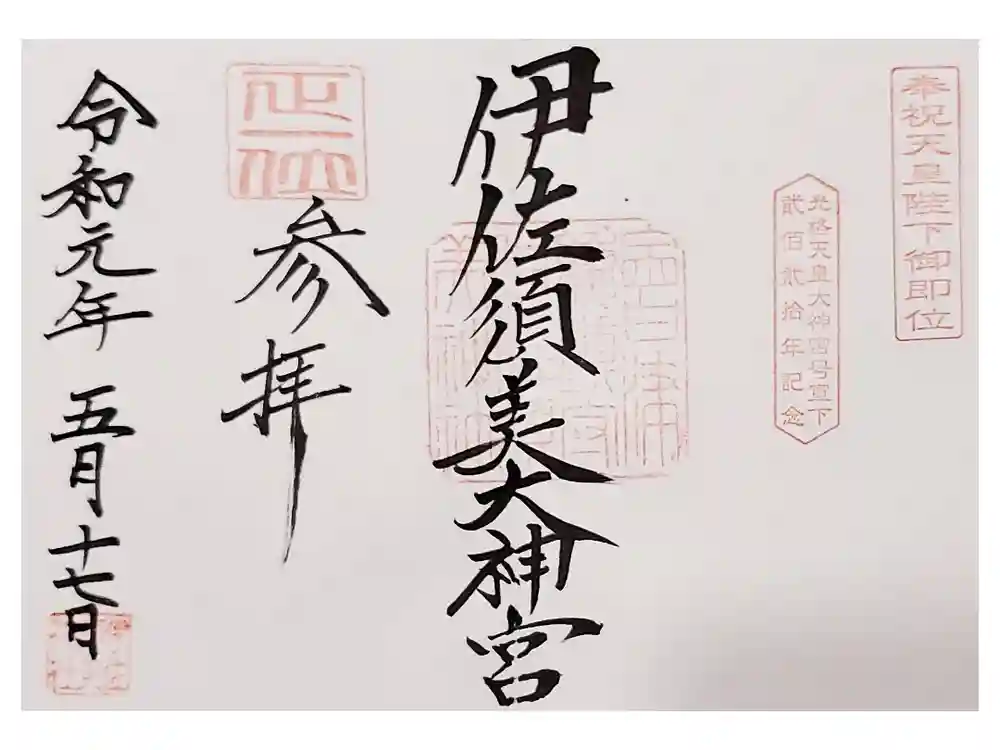 奉祝天皇陛下御即位
光格天皇大神四号宣下
貳佰貳拾年記念
伊佐須美大神宮
正一位
参拝
令和元年 五月十七日